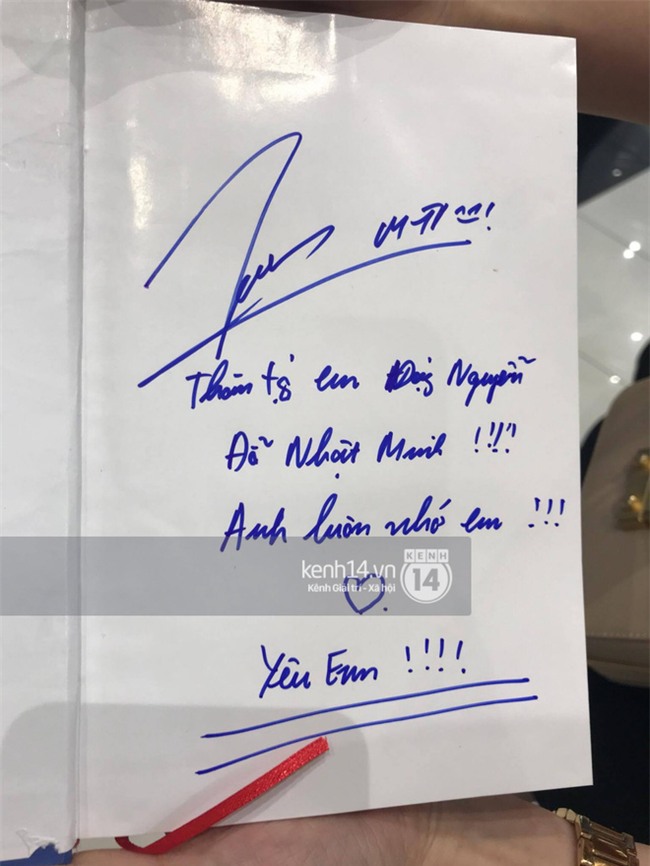 M-TP !
Thân tặng em Nguyễn
Đỗ Nhật Minh !!!!
Anh luôn nhớ em !!!
kenh14.vn
Kênh Giải trí - Xã hội
KENH
14
Yêu Em !!!!